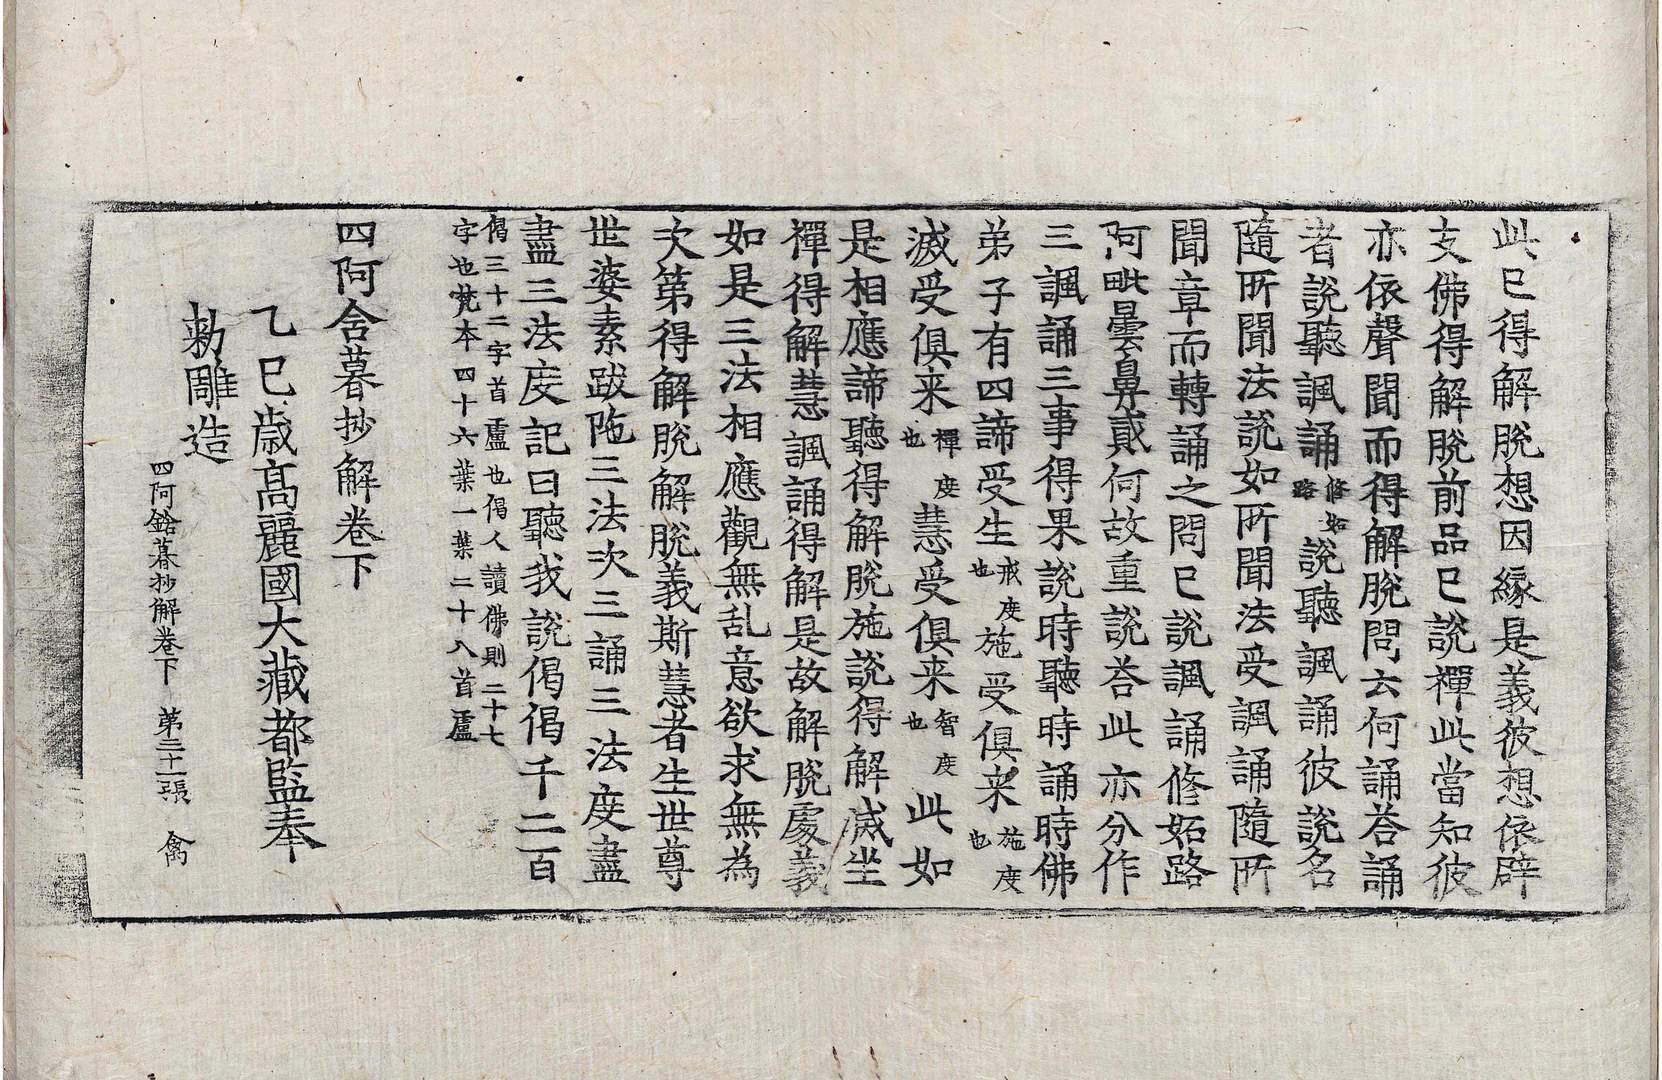 此已得解脫想因緣是義彼想依辟
支佛得解脫前品已說禪此當知彼
亦依聲聞而得解脫問云何誦荅誦
者說聽諷誦修妬路說聽諷誦彼說名
隨所聞法說如所聞法受諷誦隨所
聞章而轉誦之問已說諷誦修妬路
阿毗曇鼻貳何故重說荅此亦分作
三諷誦三事得果說時聽時誦時佛
弟子有四諦受生戒度也施受俱来施度也
滅受俱来禪度也慧受俱来智度也此如
是相應諦聽得解脫施說得解滅坐
禪得解慧諷誦得解是故解脫處義
如是三法相應觀無乱意欲求無為
次第得解脫解脫義斯慧者生世尊
世婆素跋陁三法次三誦三法度盡
盡三法度記曰聽我說偈偈千二百
偈三十二字首盧也偈人讀佛則二十七
字也梵本四十六葉一葉二十八首盧
四阿含暮抄解卷下
乙巳歲高麗國大藏都監奉
勅雕造
四阿鋡暮抄解卷下 第三十一張 禽